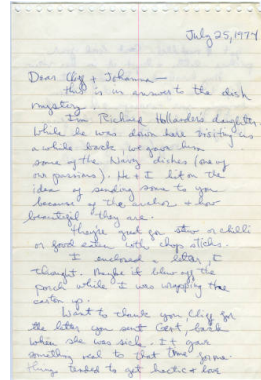 July 25, 1974
Dear Cliff & Johanna—
This is in answer to the dish
mystery.
I'm Richard Hollander's daughter.
While he was down here visiting us
a while back, we gave him
some of the Navy dishes (
our passions). He & I hit on the
idea of sending some to you
because of the anchor & how
beautiful they are.
They're just good for stew or chilli
or good eaten with chop sticks.
I enclosed a letter, I
thought. Maybe it blew off the
porch while I was wrapping the
carton up.
Want to thank you Cliff for
the letter you sent Gert, back
when she was sick. It gave
something real to that time some
things tended to get hectic & love